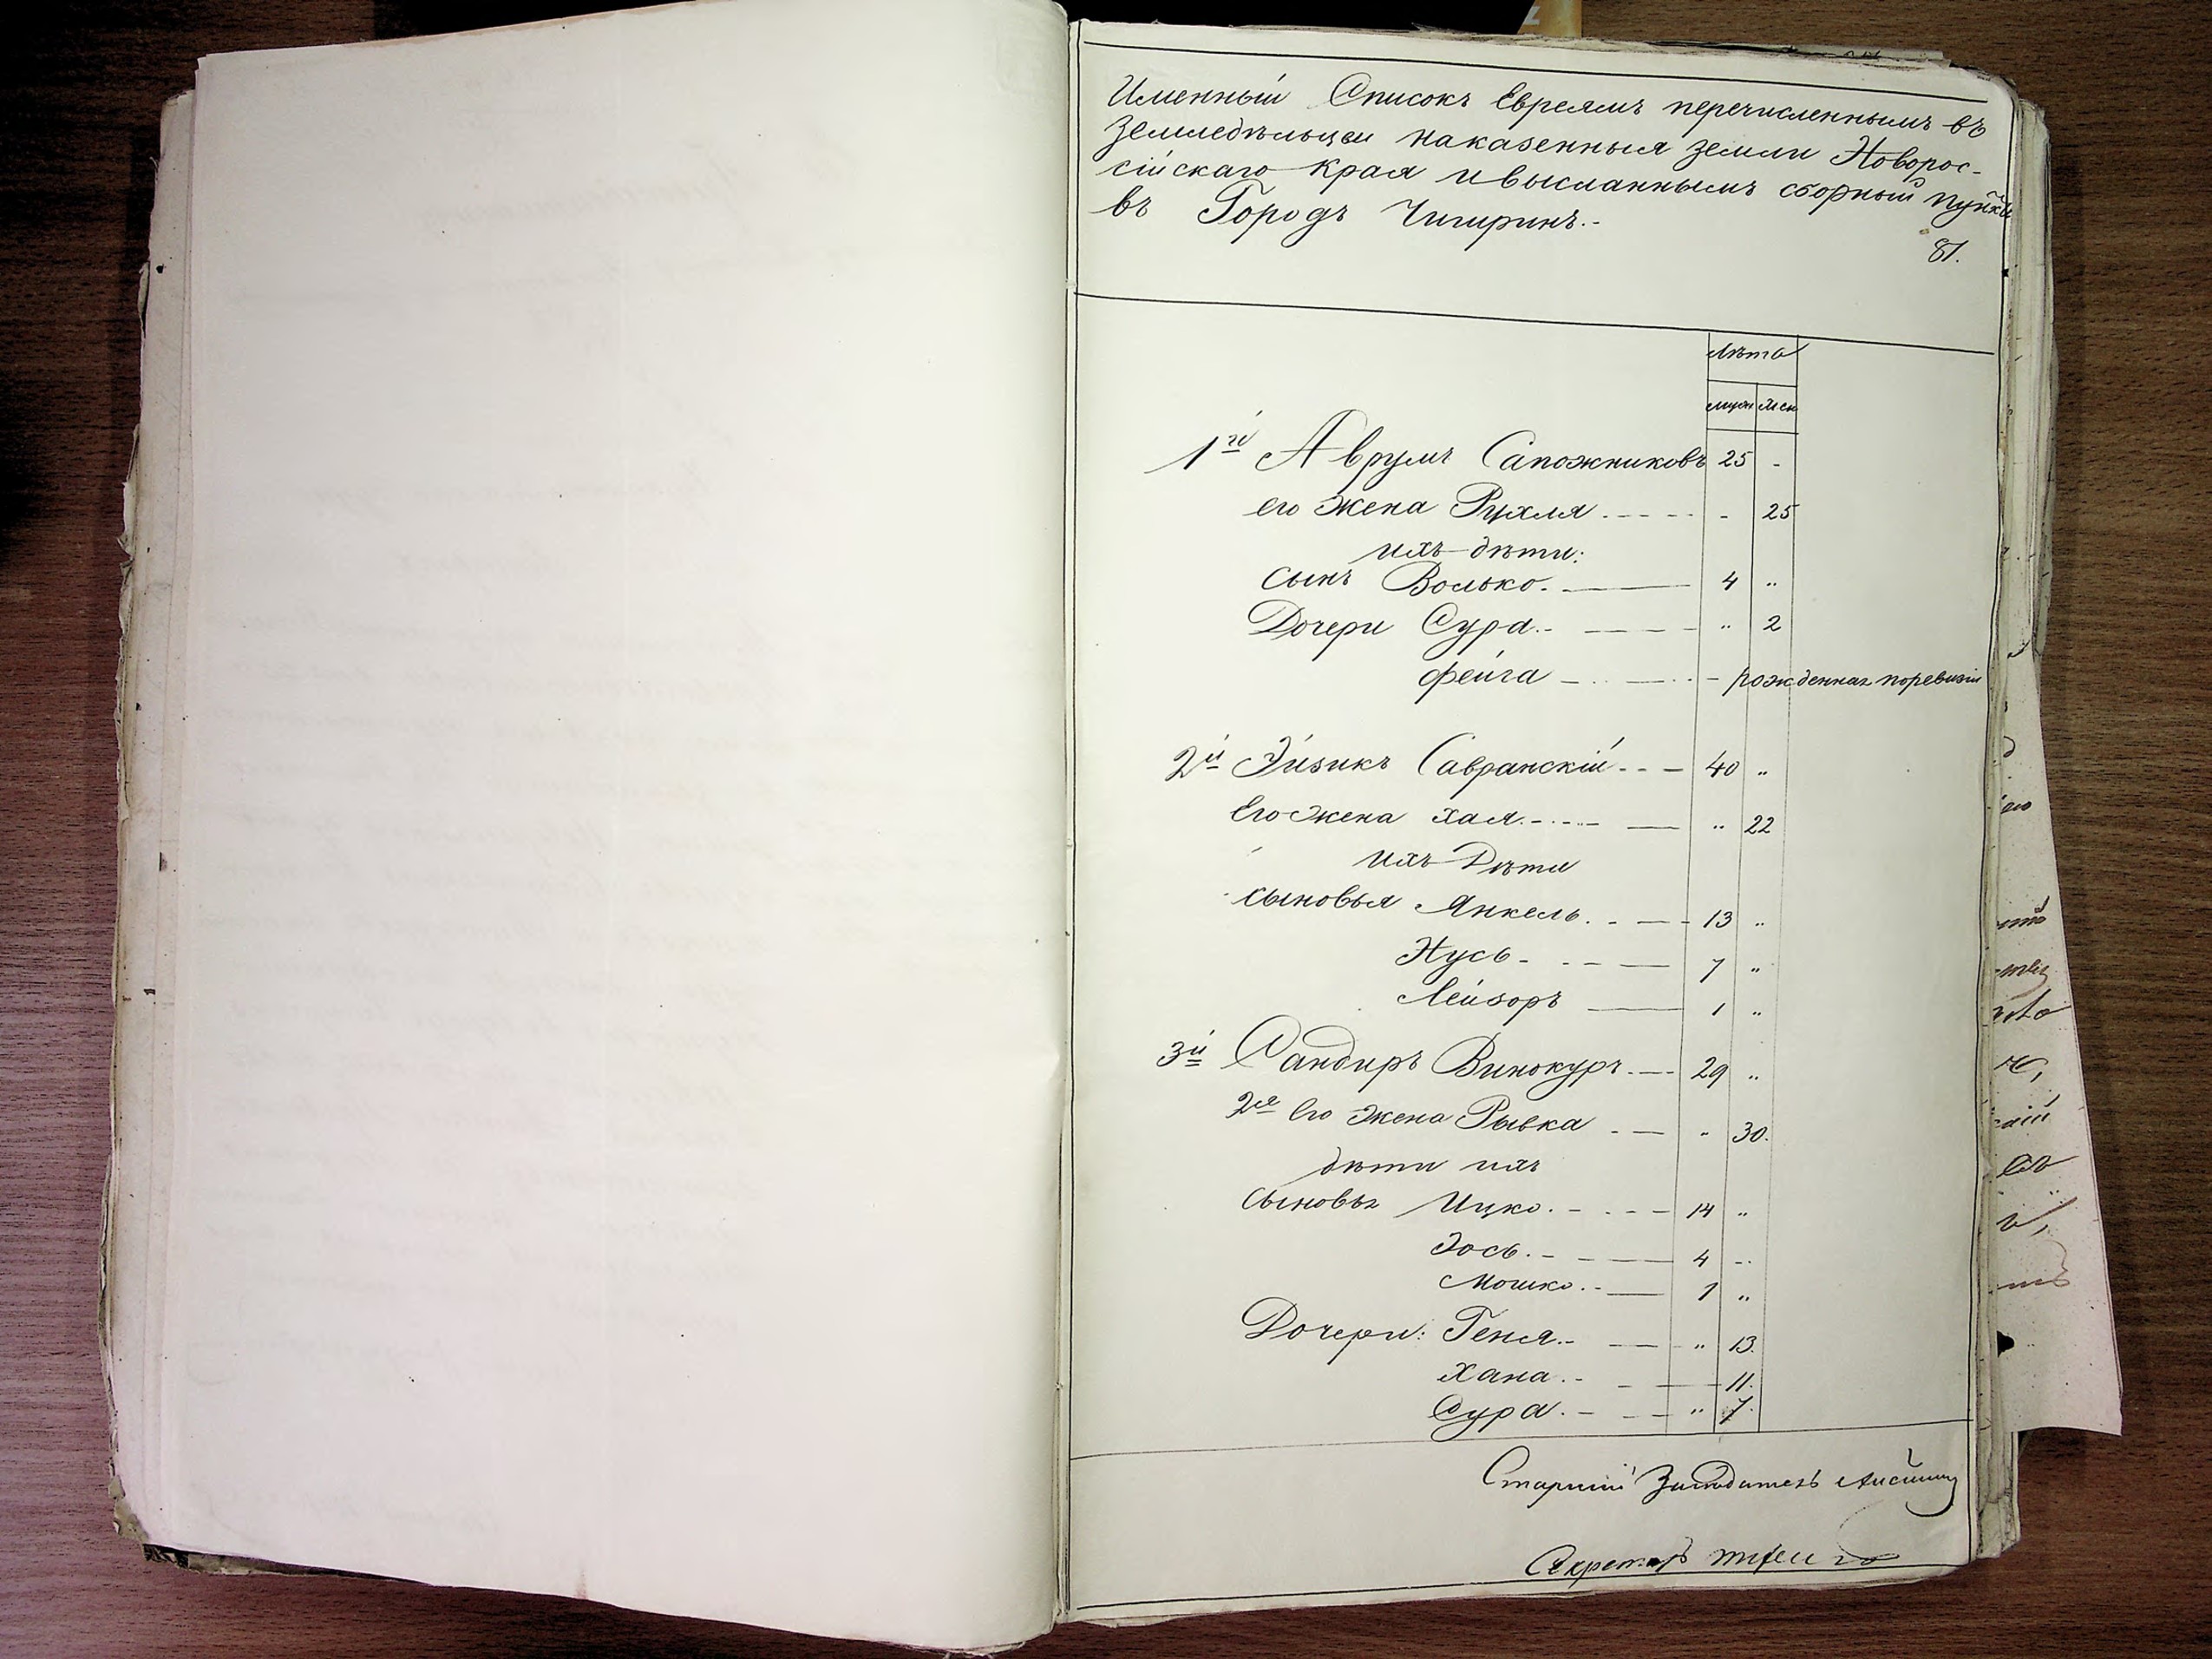 Именный Списокъ Евреямъ перечисленнымъ въ
Земледѣльцы наказенныя земли Новорос-
сійскаго края ивысланнымъ сборный пунктъ
въ Городъ Чигиринъ.-
81.
Лѣта
муж жен
1й Аврумъ Сапожниковъ 25 -
его жена Рухля - 25
ихъ дѣти:
сынъ Волько. 4 "
Дочери Сура. " 2
Фейга - рожденная поревизіи
2й Эйзикъ Савранскій 40 "
Его жена Хая " 22
ихъ Дѣти
сыновья Янкель. 13 "
Нусь 7 "
Лейзоръ 1 "
3й Сандиръ Винокуръ. 29 "
2я Его жена Рывка " 30.
дѣти ихъ
Сыновья Ицко. 14 "
Іось. 4 "
Мошко. 1 "
Дочери: Геня. " 13.
Хана. 11.
Сура. " 7.
Старшій Засѣдатель
Секретарь